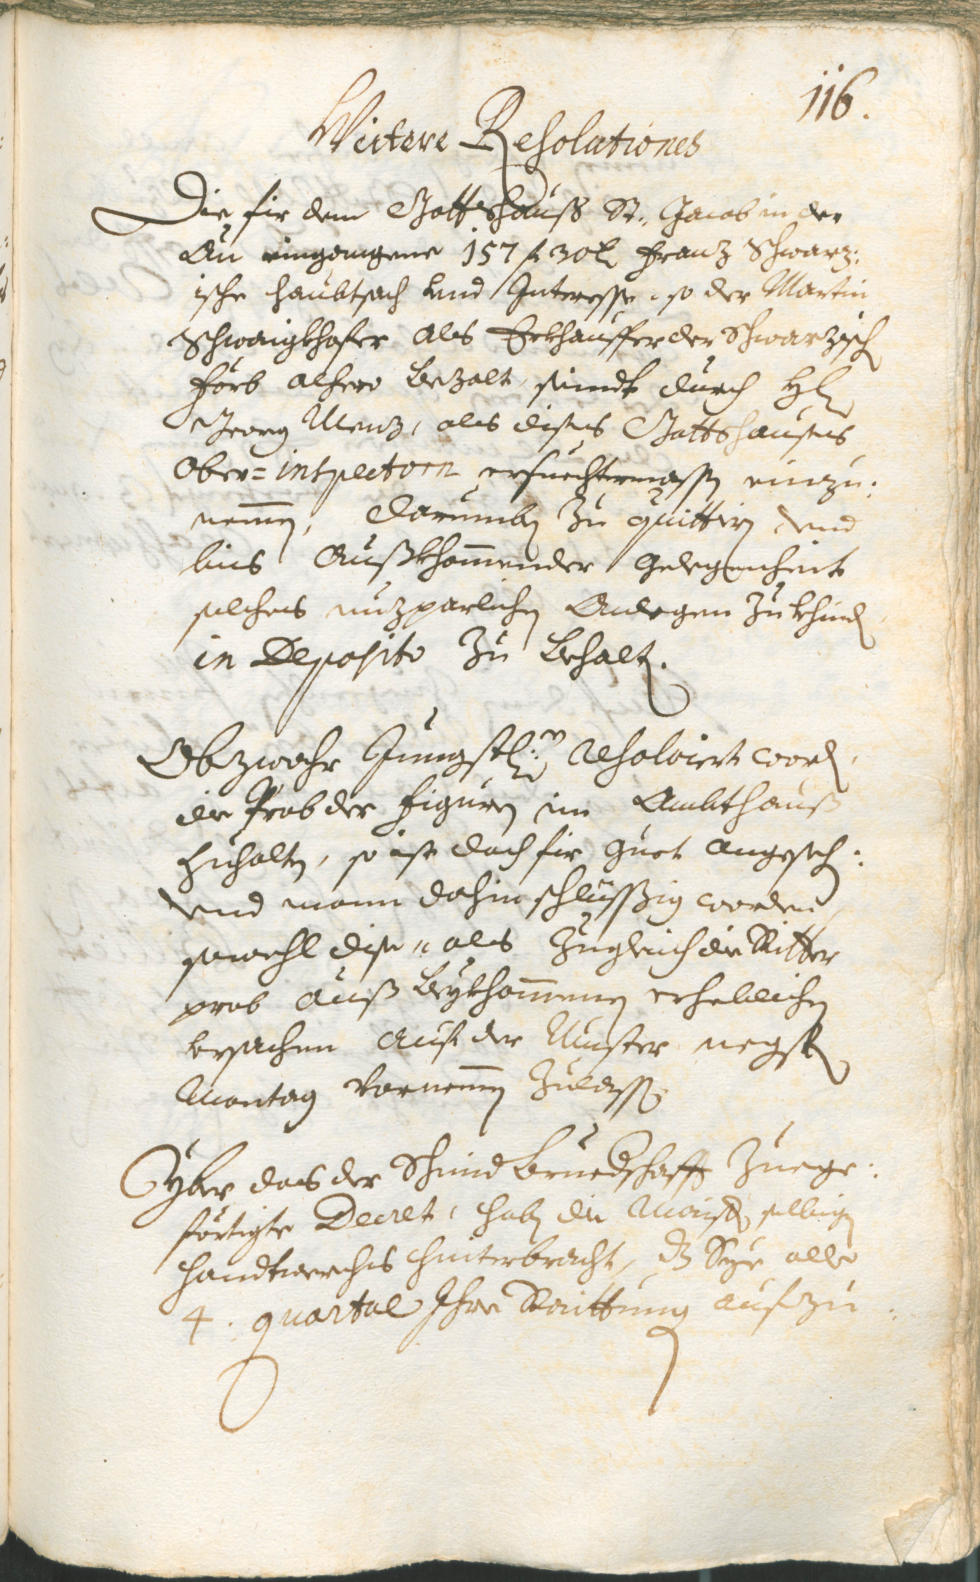 116.
Weitere Resolutiones
Die fir dem Gottshauß St. Jacob in der
Au eingangene 157 f 30 k Franz Schwarz:
ische Haubtsach und Interesse, so der Martin
Schwaigkhofer als Erkhauffer der Schwarzisch
Förb alhero bezalt, seindt durch H:
Georg Menz, als dises Gottshauses
Ober=inspectorn ersuechtermassen einzu:
nemen, darumben zu quittirn und
bis Außkhommender gelegenheit
solches nuzparlichen Anlegen zu khinden
in Deposito zu behalten.
Obzwohr Jungsthin resolviert worden,
die Prob der Figuren im Ambthauß
zuhalten, so ist doch fir guet angesechen:
und mann dahin schlüssig worden,
sowohl dise, als zugleich die Ritter
prob auß beykhommenen erheblichen
ursachen auf der Muster negsten
Montag vornemmen zulassen.
Yber das der Schmid Bruedschafft zuege:
förtigte Decret, haben die Maister selbigen
Handtwerchs hinterbracht, dz Sye alle
4. quartal Ihre Raittung aufzu